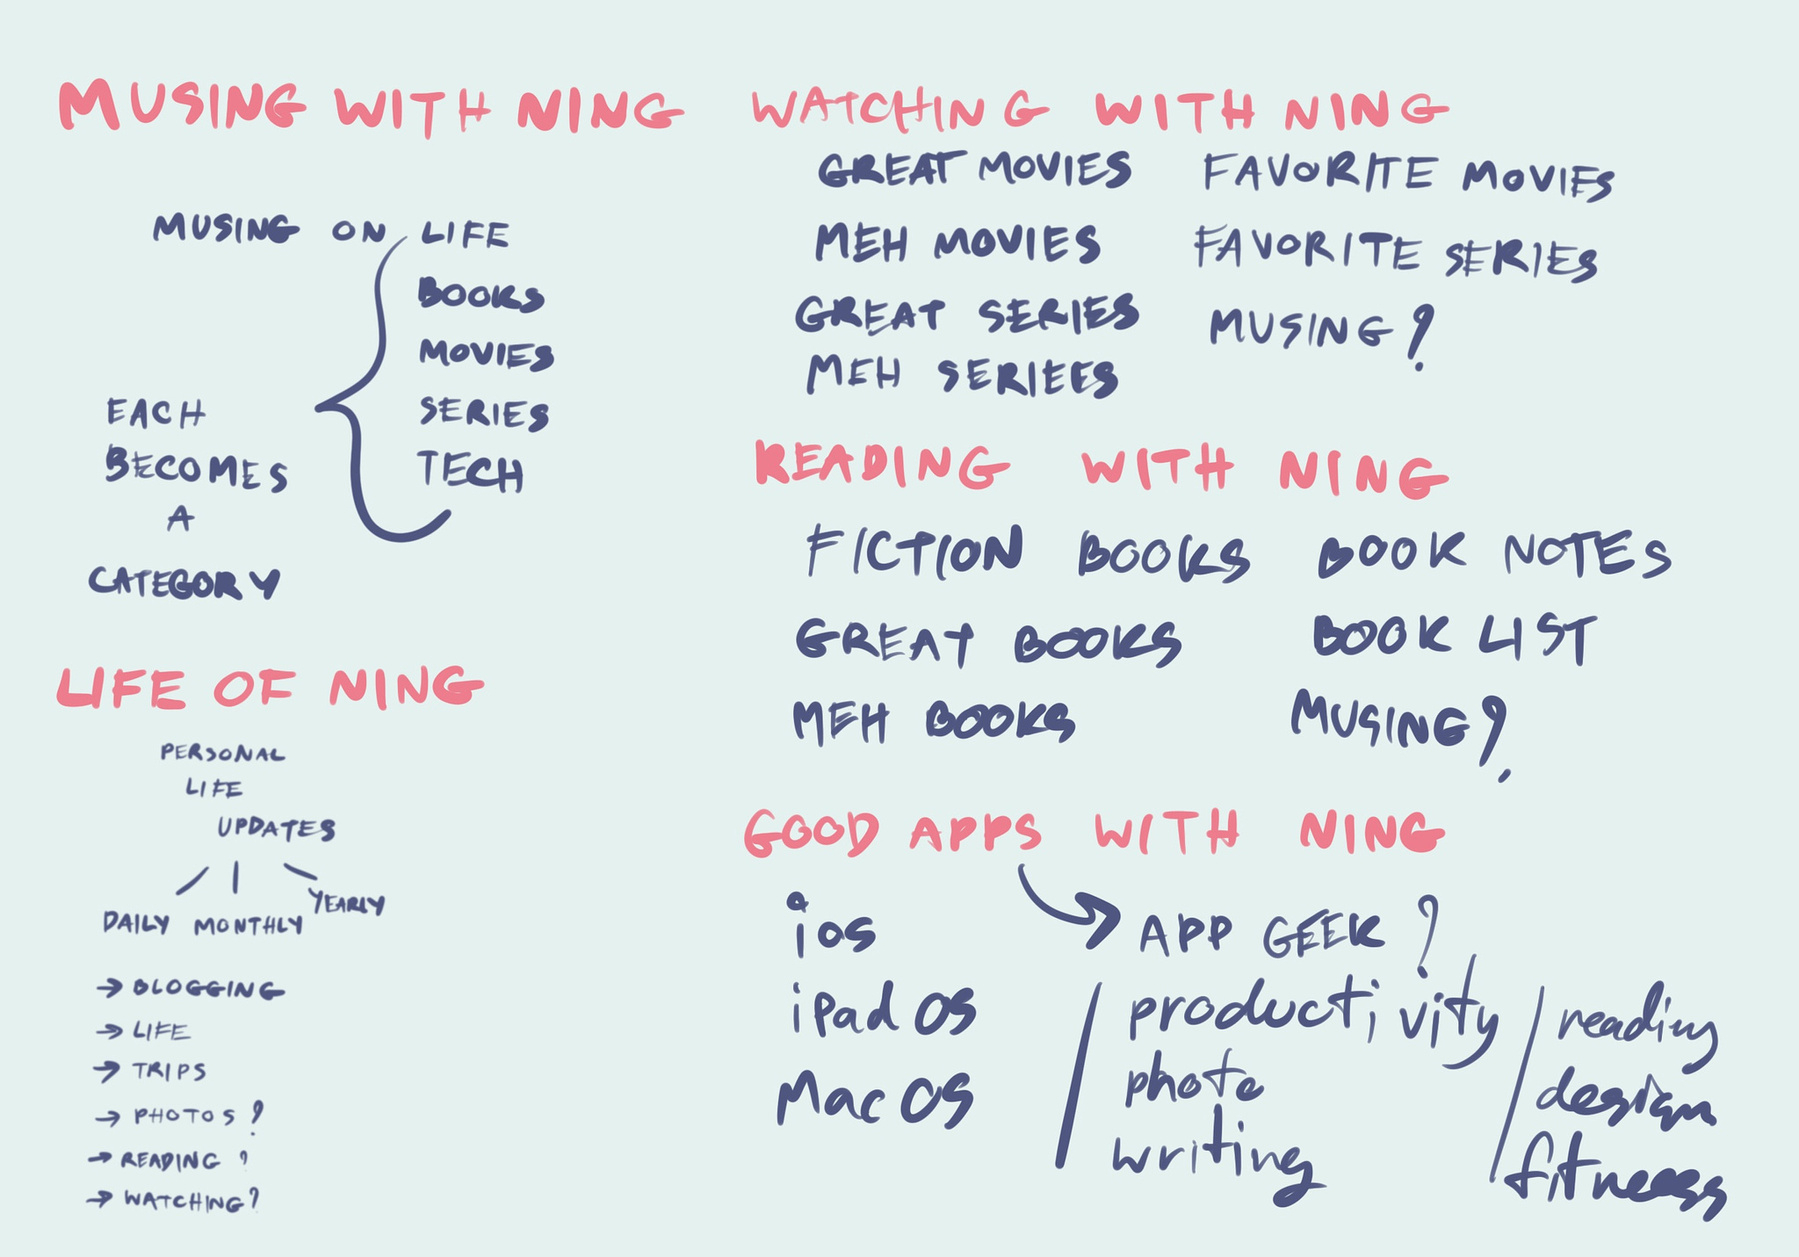 MUSING WITH NING
MUSING ON LIFE
BOOKS
MOVIES
SERIES
TECH
EACH
BECOMES
A
CATEGORY
LIFE OF NING
PERSONAL
LIFE
UPDATES
DAILY MONTHLY YEARLY
→ BLOGGING
→ LIFE
→ TRIPS
→ PHOTOS?
→ READING?
→ WATCHING?
WATCHING WITH NING
GREAT MOVIES
MEH MOVIES
GREAT SERIES
MEH SERIEES
FAVORITE MOVIES
FAVORITE SERIES
MUSING?
READING WITH NING
FICTION BOOKS
GREAT BOOKS
MEH BOOKS
BOOK NOTES
BOOK LIST
MUSING?
GOOD APPS WITH NING
→ APP GEEK?
ios
ipad OS
Mac OS
productivity
photo
writing
reading
design
fitness